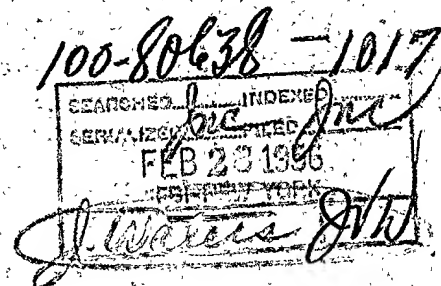 100-80638-1017
SEARCHED INDEXED
SERIALIZED FILED
FEB 23 1956
FBI - NEW YORK